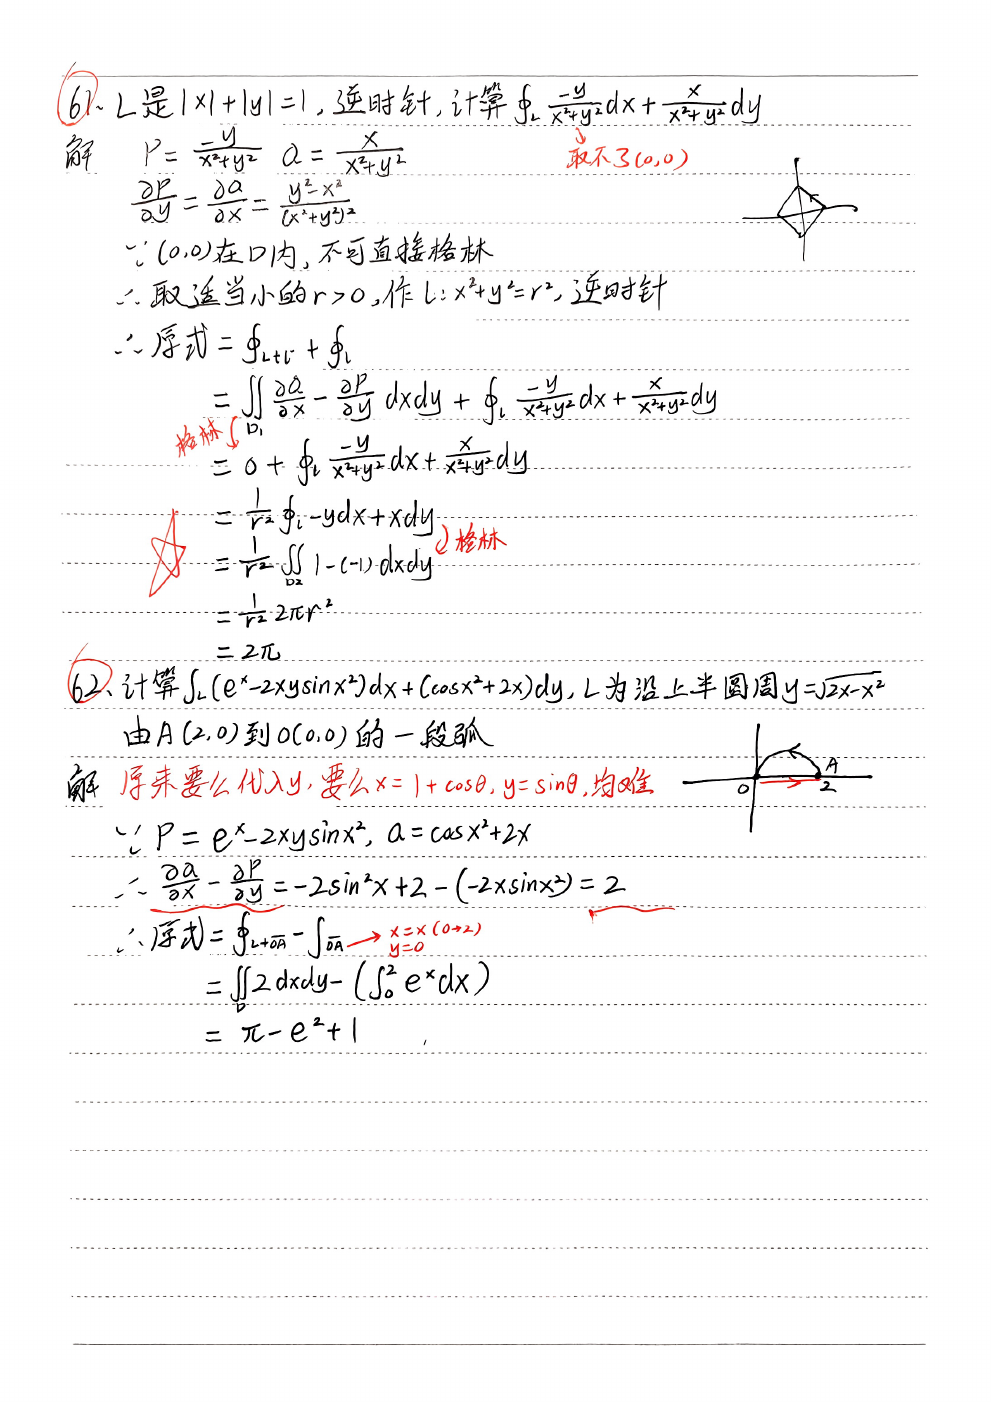 61、L是|x|+|y|=1,逆时针,计算∮_L -y/(x²+y²)dx+x/(x²+y²)dy
取不了(0,0)
解 P=-y/(x²+y²) Q=x/(x²+y²)
∂P/∂y=∂Q/∂x=(y²-x²)/(x²+y²)²
∵(0,0)在D内,不可直接格林
∴取适当小的r>0,作l:x²+y²=r²,逆时针
∴原式=∮_{L+l⁻}+∮_l
=∬_{D₁}∂Q/∂x-∂P/∂y dxdy+∮_l -y/(x²+y²)dx+x/(x²+y²)dy
格林
=0+∮_l -y/(x²+y²)dx+x/(x²+y²)dy
=1/r²∮_l-ydx+xdy
格林
=1/r²∬_{D2}1-(-1)dxdy
=1/r² 2πr²
=2π
62、计算∫_L(eˣ-2xysinx²)dx+(cosx²+2x)dy,L为沿上半圆周y=√(2x-x²)
由A(2,0)到O(0,0)的一段弧
A
O 2
解 原来要么代入y,要么x=1+cosθ,y=sinθ,均难
∵P=eˣ-2xysinx²,Q=cosx²+2x
∴∂Q/∂x-∂P/∂y=-2sin²x+2-(-2xsinx²)=2
∴原式=∮_{L+OA}-∫_{OA}→x=x(0→2)
y=0
=∬_D2dxdy-(∫₀²eˣdx)
=π-e²+1